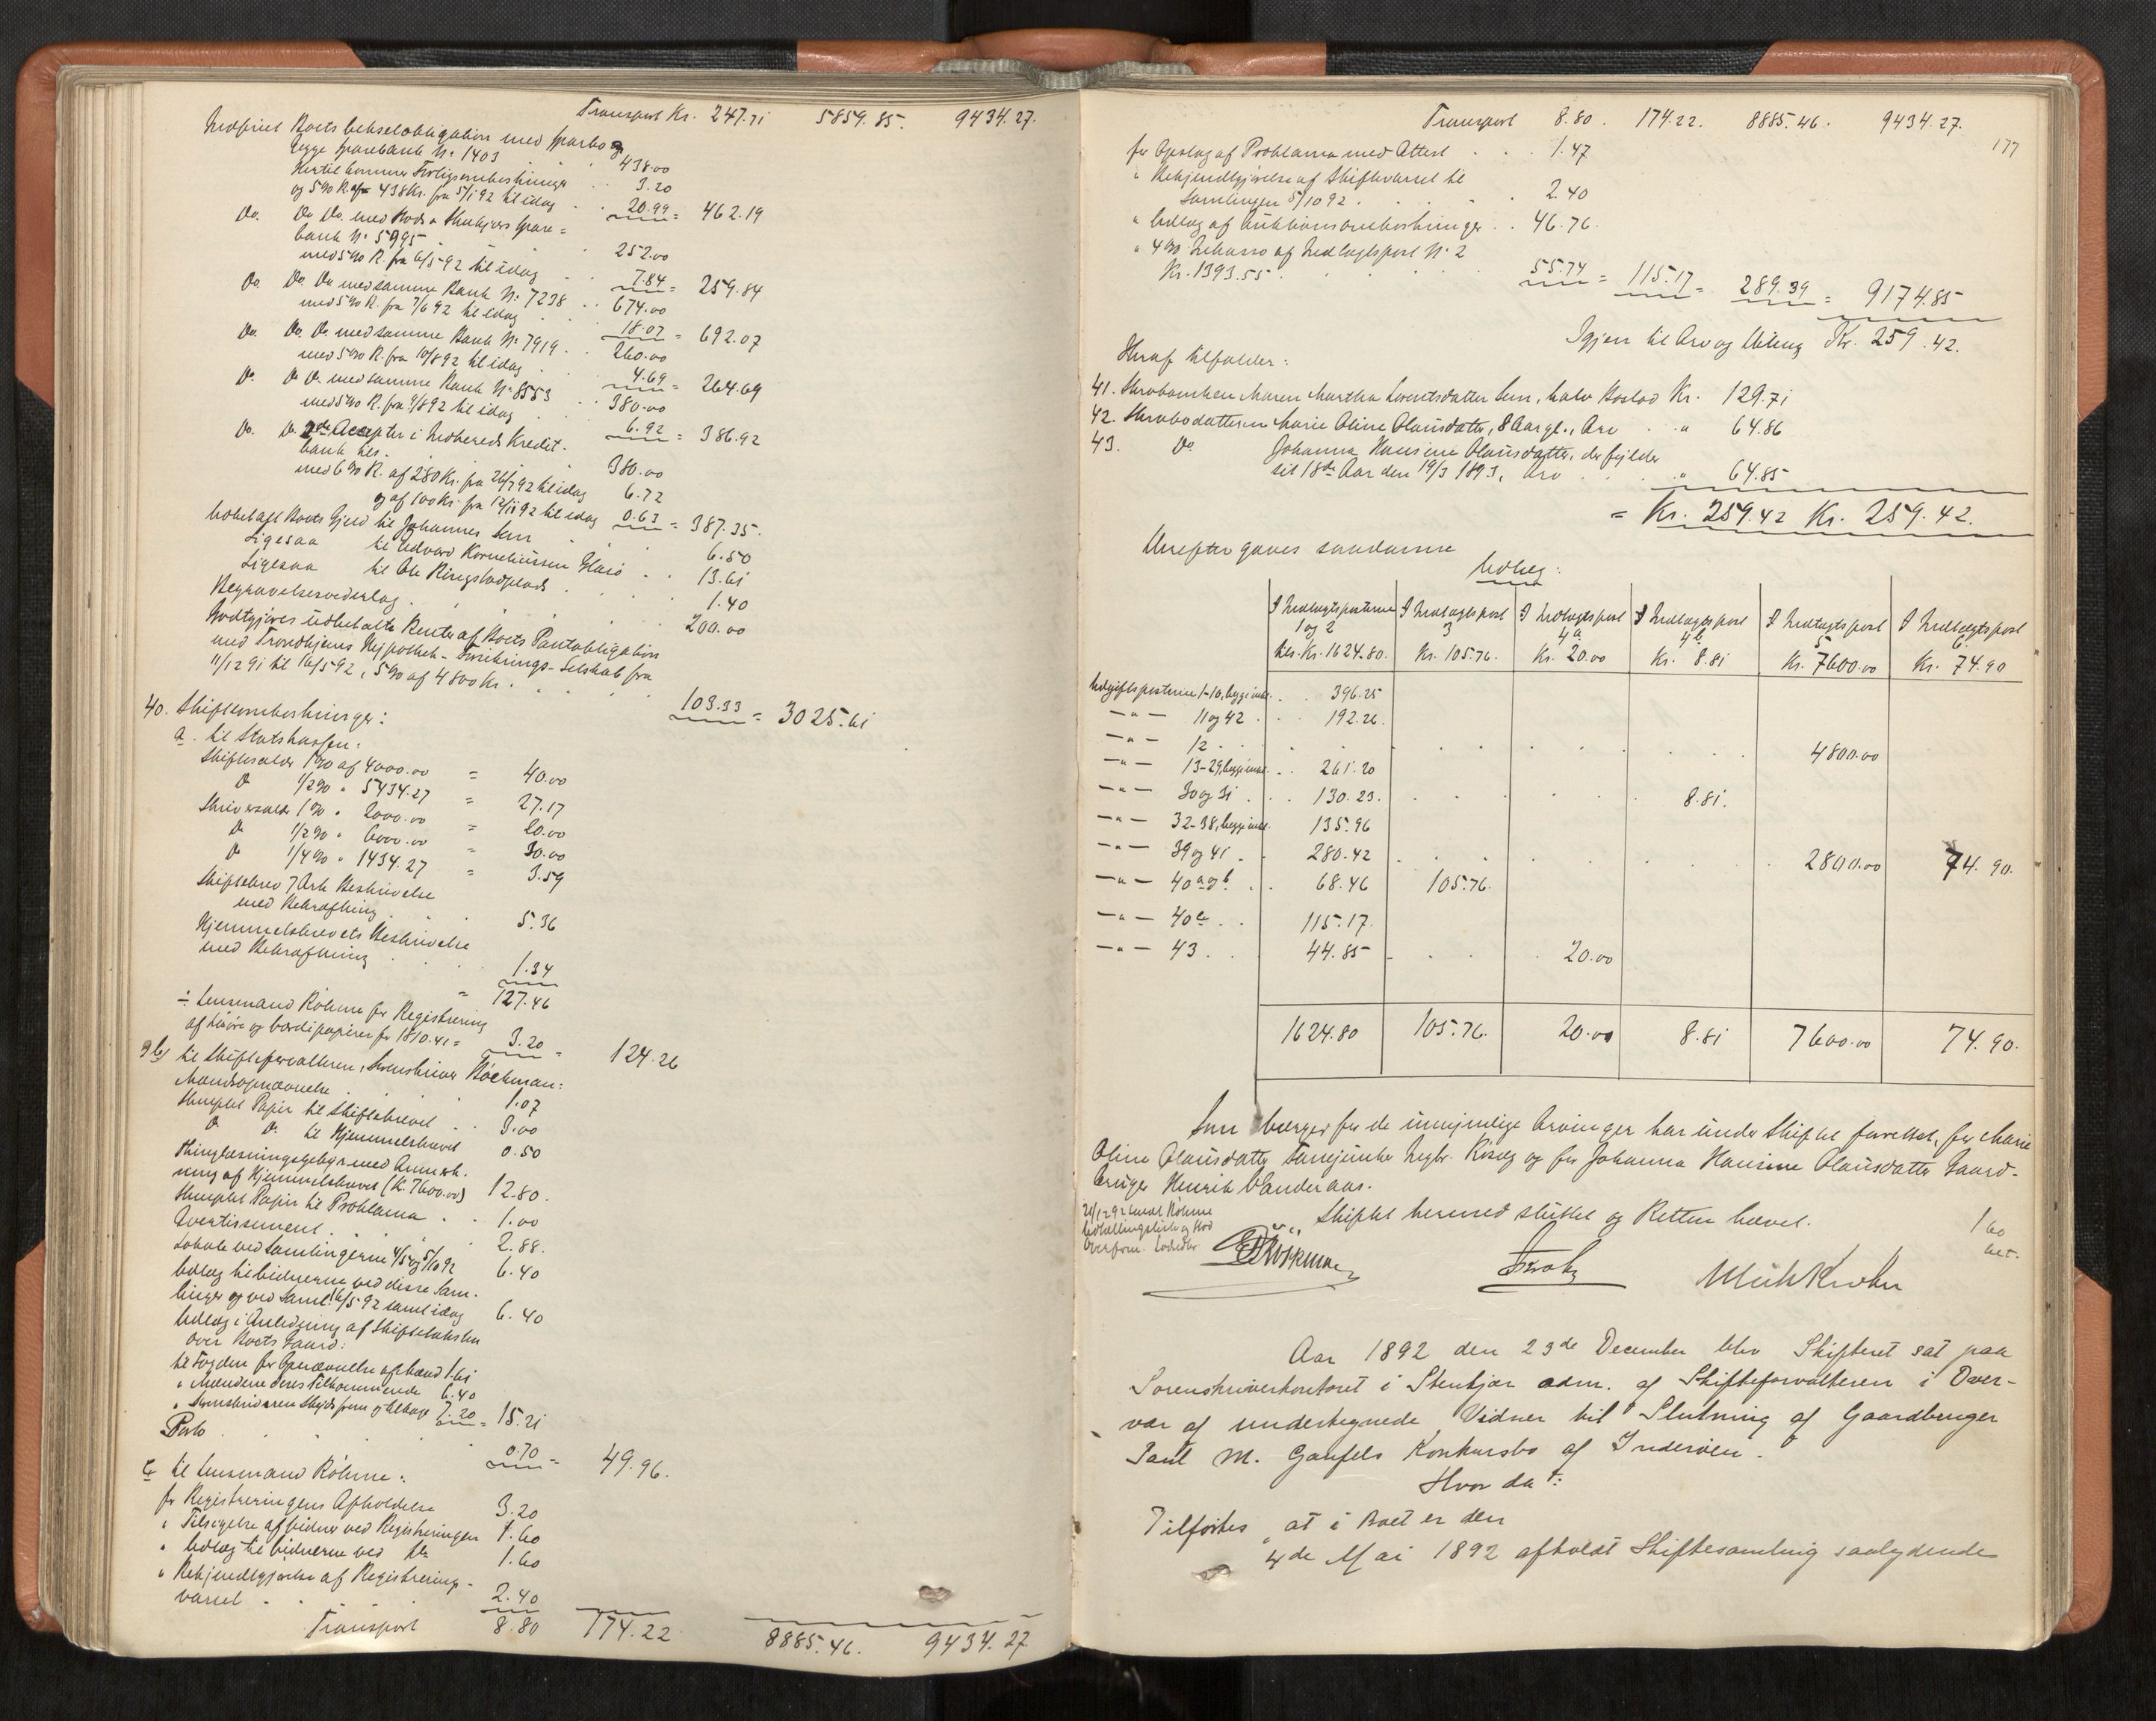 Transport Kr. 247.71 5859.85. 9434.27.
Indfriet Boets Vexelobligation med Sparbo og
Egge Sparebank No 1403 438.00
Hertil kommer Forligsomkostninger 3.20
og 5% R. af 438 Kr. fra 5/1 92 til idag 20.99 = 462.19
Do. Do Do. med Stods & Stenkjærs Spare=
bank No 5995 252.00
med 5% R. fra 6/5 92 til idag 7.84 = 259.84
Do. Do. Do med samme Bank No 7238 674.00
med 5% R. fra 7/6 92 til idag 18.07 = 692.07
Do. Do. Do med samme Bank No 7919 260.00
med 5% R. fra 10/8 92 til idag 4.69 = 264.69
Do. Do Do. med samme Bank No 8553 380.00
med 5% R. fra 9/8 92 til idag 6.92 = 386.92
Do. Do. 2de Accepter i Indherreds Kredit-
bank tils. 380.00
med 6% R. af 280 Kr. fra 26/7 92 til idag 6.72
og af 100 Kr. fra 12/11 92 til idag 0.63 = 387.35.
Udbetalt Boets Gjæld til Johannes Sem 6.50
Ligesaa til Edvard Korneliussen 13.61
Ligesaa til Ole Ringstadplads 1.40
Begravelsesvederlag 200.00
Godtgjøres udbetalte Renter af Boets Pantobligation
med Trondhjems Hypothek-Forsikrings-Selskab fra
11/12 91 til 16/5 92, 5% af 4800 Kr. 103.33 = 3025.61
40. Skifteomkostninger:
a. til Statskassen:
Skiftesalær 1% af 4000.00 = 40.00
Do 1/2% " 5434.27 = 27.17
Skriversalær 1% " 2000.00 = 20.00
Do 1/2% " 6000.00 = 30.00
Do 1/4% " 1434.27 = 3.59
Skiftebrev 7 Ark Beskrivelse
med Bekræftning 5.36
Hjemmelsbrevets Beskrivelse
med Bekræftning 1.34
= 127.46
÷ Lensmand Røhme for Registrering
af Løsøre og Værdipapirer for 1810.41 = 3.20 = 124.26
b) til Skifteforvalteren, Sorenskriver Böckman:
Mandsopnævnelse 1.07
Stemplet Papir til Skiftebrevet 3.00
Do Do. til Hjemmelsbrevet 0.50
Thinglæsningsgebyr med Anmærk-
ning af Hjemmelsbrevet (K. 7600.00) 12.80.
Stemplet Papir til Proklama 1.00
Avertissement 2.88.
Lokale ved Samlingerne 4/5 og 5/10 92 6.40
Udlæg til Vidnerne ved disse Sam-
linger og ved Saml. 16/5 92 samt idag 6.40
Udlæg i Anledning af Skiftetaksten
over Boets Gaard:
til Fogden for Opnævnelse af Mænd 1.61
" Mændene deres Tilkommende 6.40
" Sorenskriveren Skyds frem og tilbage 7.20 = 15.21
Porto 0.70 = 49.96.
c. til Lensmand Røhme:
for Registreringens Afholdelse 3.20
" Tilsigelse af Vidner ved Registreringen 1.60
" Udlæg til Vidnerne ved Do 1.60
" Bekjendtgjørelse af Registrerings-
varsel 2.40
Transport 8.80 174.22 8885.46. 9434.27
Transport 8.80. 174.22. 8885.46. 9434.27.
177
for Opslag af Proklama med Attest 1.47
" Bekjendtgjørelse af Skiftevarsel til
Samlingen 5/10 92 2.40
" Udlæg af Auktionsomkostninger 46.76.
" 4% Inkasso af Indtægtspost No 2
Kr. 1393.55 55.74 = 115.17 = 289.39 = 9174.85
Igjen til Arv og Deling Kr. 259.42.
Heraf tilfalder:
41. Skrubosenken Maren Martha Lorentsdatter Sem, halv Boslod Kr. 129.71
42. Skrubodatteren Marie Oline Olausdatter, 8 Aar gl., Arv " 64.86
43. Do Johanna Hansine Olausdatter, der fylder
sit 18de Aar den 19/3 1893, Arv " 64.85
= Kr. 259.42 Kr. 259.42.
Derefter gaves saadanne
Udlæg:
I Indtægtsposterne I Indtægtspost I Indtægtspost I Indtægtspost I Indtægtspost I Indtægtspost
1 og 2 3 4a 4b 5 6
tils. Kr. 1624.80. Kr. 105.76. Kr. 20.00 Kr. 8.81 Kr. 7600.00 Kr. 74.90
Udgiftsposterne 1-10, begge inkl. 396.25
—"— 11 og 42 192.26.
—"— 12 4800.00
—"— 13-29, begge inkl. 261.20
—"— 30 og 31 130.23. 8.81.
—"— 32-38, begge inkl. 135.96
—"— 39 og 41 280.42 2800.00 74.90.
—"— 40a og b 68.46 105.76.
—"— 40c 115.17.
—"— 43 44.85 20.00
1624.80 105.76. 20.00 8.81 7600.00 74.90.
Som Værger for de umyndige Arvinger har under Skiftet fungeret, for Marie
Oline Olausdatter Ingbr. og for Johanna Hansine Olausdatter Gaard-
bruger Henrik Vanderaas.
Skiftet hermed sluttet og Retten hævet.
Böckman
Aar 1892 den 23de December blev Skifteret sat paa
Sorenskriverkontoret i Stenkjær adm. af Skifteforvalteren i Over-
vær af undertegnede Vidner til Slutning af Gaardbruger
Paul M. Gaufels Konkursbo af Inderøen.
Hvor da:
Tilførtes, at i Boet er den
4de Mai 1892 afholdt Skiftesamling saalydende